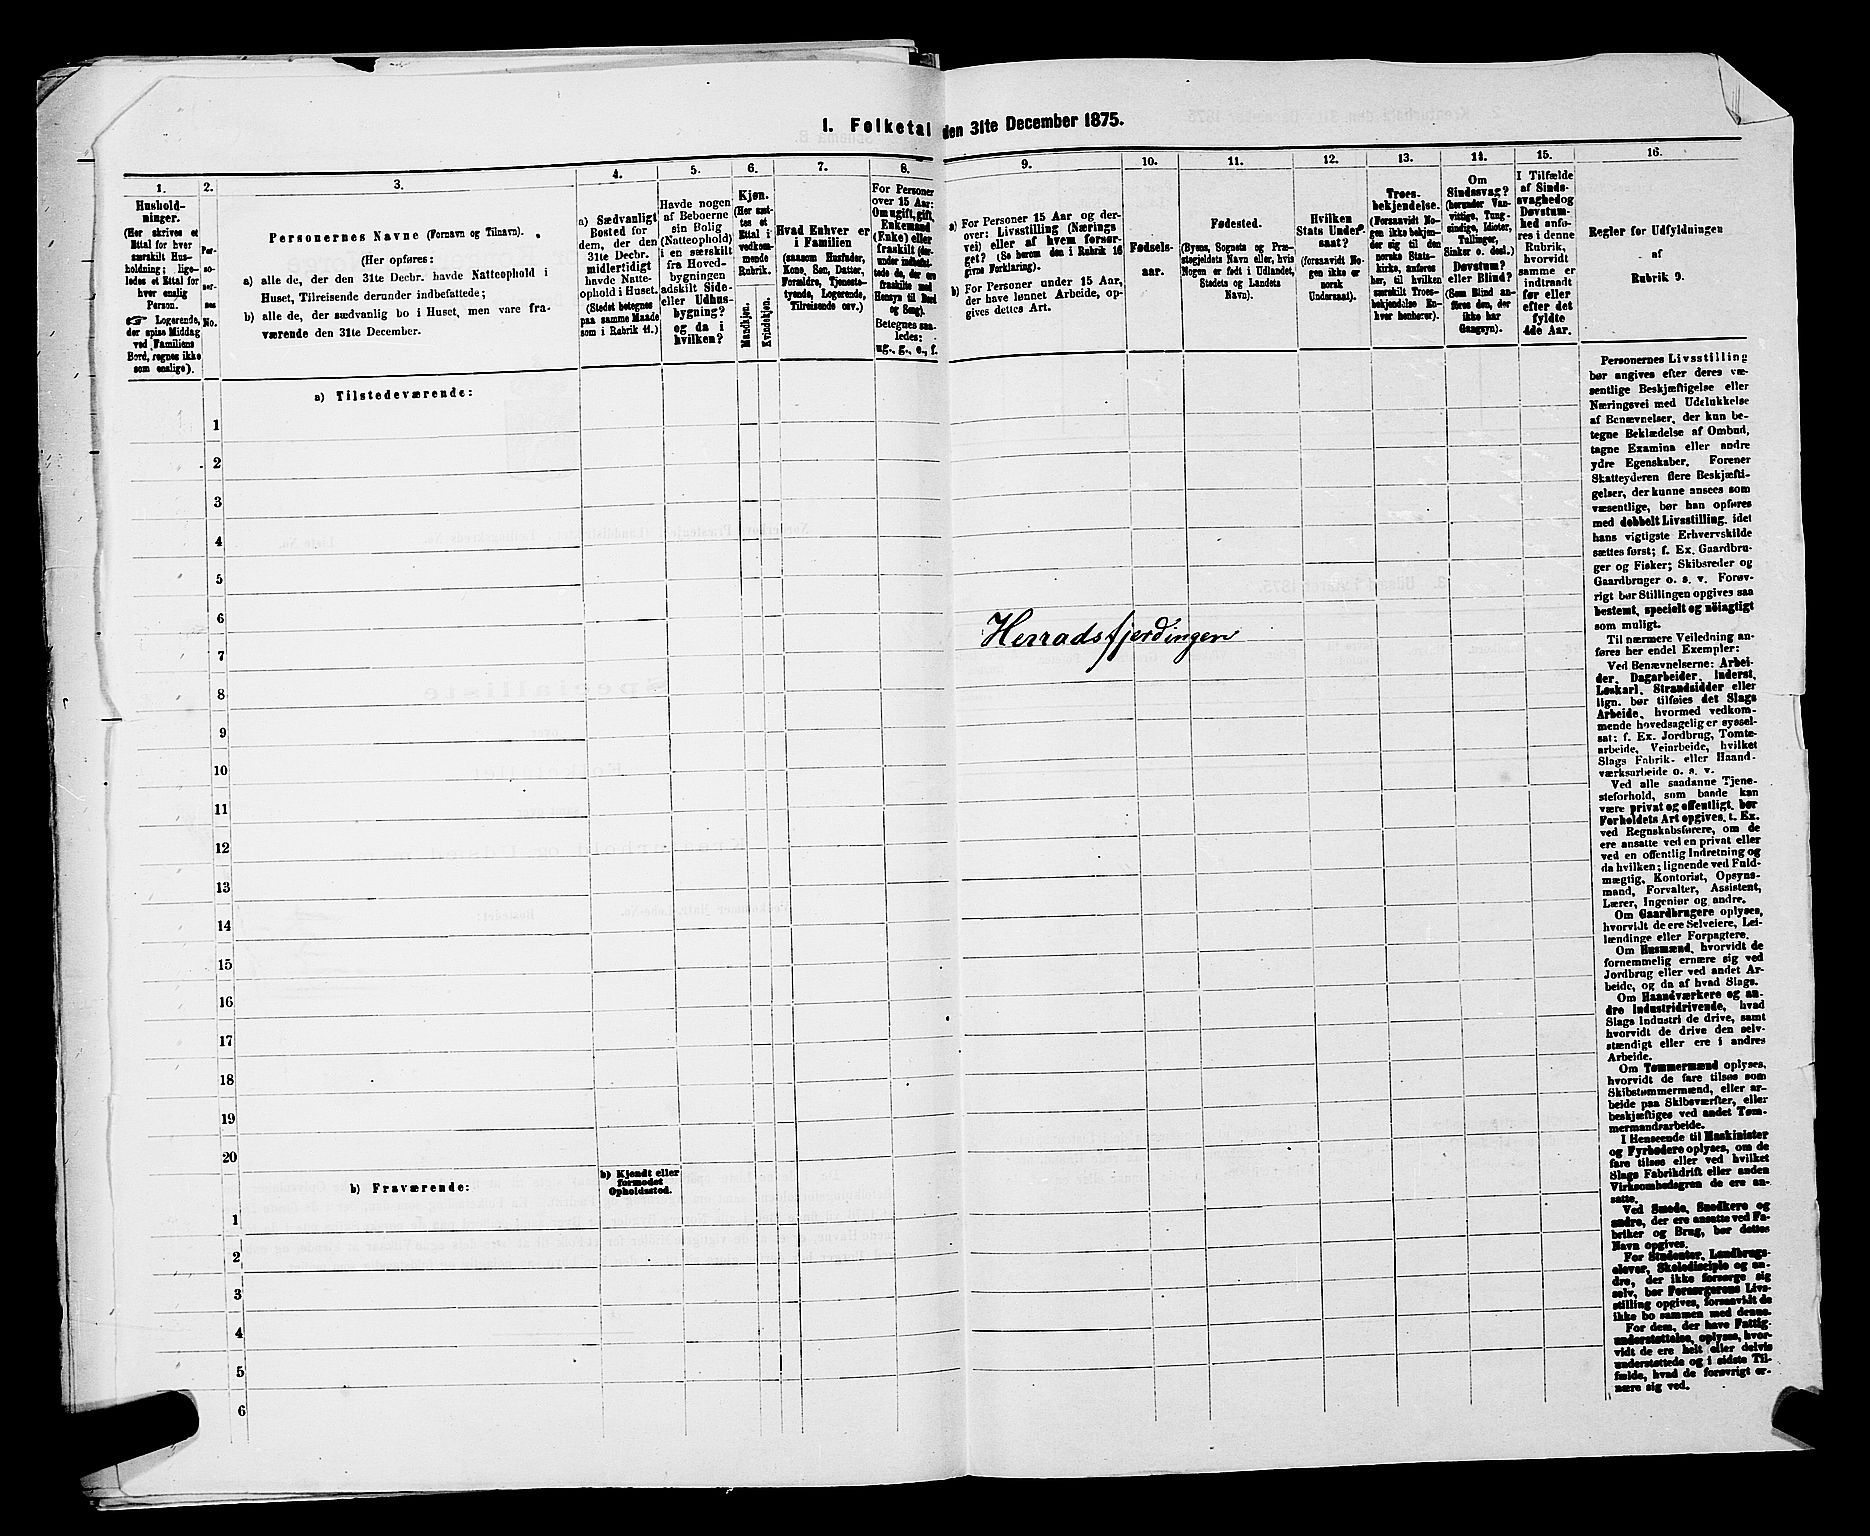 1. Folketal den 31te December 1875.
1.
Hushold-
ninger.
(Her skrives et
Ettal for hver
særskilt Hus-
holdning; lige-
ledes et Ettal for
hver enslig
Person.
☞ Logerende,
der spise Middag
ved Familiens
Bord, regnes ikke
som enslige).
2.
Per-
so-
ner-
nes
No.
3.
Personernes Navne (Fornavn og Tilnavn).
(Her opføres:
a) alle de, der den 31te Decbr. havde Natteophold i
Huset, Tilreisende derunder indbefattede;
b) alle de, der sædvanlig bo i Huset, men vare fra-
værende den 31te December.
4.
a) Sædvanligt
Bosted for
dem, der den
31te Decbr.
midlertidigt
havde Natte-
ophold i Huset.
(Stedet betegnes
paa samme Maade
som i Rubrik 11.)
5.
Havde nogen
af Beboerne
sin Bolig
(Natteophold)
i en særskilt
fra Hoved-
bygningen
adskilt Side-
eller Udhus-
bygning?
og da i
hvilken?
6.
Kjøn.
(Her sæt-
tes et
Ettal i
vedkom-
mende
Rubrik.
Mandkjøn.
Kvindekjøn.
7.
Hvad Enhver er
i Familien
(saasom Husfader,
Kone, Søn, Datter,
Forældre, Tjeneste-
tyende, Logerende,
Tilreisende osv.)
8.
For Personer
over 15 Aar:
Om ugift, gift,
Enkemand
(Enke) eller
fraskilt (der-
under indbefat-
tede de, der ere
fraskilte med
Hensyn til Bord
og Seng).
Betegnes saa-
ledes:
ug., g., e., f.
9.
a) For Personer 15 Aar og der-
over: Livsstilling (Nærings
vei) eller af hvem forsør-
get? (Se herom den i Rubrik 16
givne Forklaring).
b) For Personer under 15 Aar,
der have lønnet Arbeide, op-
gives dettes Art.
10.
Fødsels-
aar.
11.
Fødested.
(Byens, Sognets og Præ-
stegjeldets Navn eller, hvis
Nogen er født i Udlandet,
Stedets og Landets
Navn).
12.
Hvilken
Stats Under-
saat?
(forsaavidt No-
gen ikke er
norsk
Undersaat).
13.
Troes-
bekjendelse.
(Forsaavidt No-
gen ikke bekjen-
der sig til den
norske Stats-
kirke, anføres
her, til hvilken
særskilt Troes-
bekjendelse En-
hver henhører).
14.
Om
Sindssvag?
(herunder Van-
vittige, Tung-
sindige, Idioter,
Tullinger,
Sinker o. desl.)
Døvstum?
eller Blind?
(Som Blind an-
føres den, der
ikke har
Gangsyn).
15.
I Tilfælde
af Sinds-
svaghed og
Døvstum-
hed anfø-
res i denne
Rubrik,
hvorvidt
samme er
indtraadt
før eller
efter det
fyldte
4de Aar.
16.
Regler for Udfyldningen
af
Rubrik 9.
a) Tilstedeværende:
1
2
3
4
5
6
7
8
9
10
11
12
13
14
15
16
17
18
19
20
b) Fraværende:
b) Kjendt eller
formodet
Opholdssted.
1
2
3
4
5
6
Herradsfjerdingen
Personernes Livsstilling
bør angives efter deres væ-
sentlige Beskjæftigelse eller
Næringsvei med Udelukkelse
af Benævnelser, der kun be-
tegne Beklædelse af Ombud,
tagne Examina eller andre
ydre Egenskaber. Forener
Skatteyderen flere Beskjæfti-
gelser, der kunne ansees som
væsentlige, bør han opføres
med dobbelt Livsstilling, idet
hans vigtigste Erhvervskilde
sættes først; f. Ex. Gaardbru-
ger og Fisker; Skibsreder og
Gaardbruger o. s. v. Forøv-
rigt bør Stillingen opgives saa
bestemt, specielt og nöiagtigt
som muligt.
Til nærmere Veiledning an-
føres her endel Exempler:
Ved Benævnelserne: Arbei-
der, Dagarbeider, Inderst,
Løskarl, Strandsidder eller
lign. bør tilføies det Slags
Arbeide, hvormed vedkom-
mende hovedsagelig er syssel-
sat; f. Ex. Jordbrug, Tomte-
arbeide, Veiarbeide, hvilket
Slags Fabrik- eller Haand-
værksarbeide o. s. v.
Ved alle saadanne Tjene-
steforhold, som baade kan
være privat og offentligt, bør
Forholdets Art opgives, t. Ex.
ved Regnskabsførere, om de
ere ansatte ved en privat eller
ved en offentlig Indretning og
da hvilken; lignende ved Fuld-
mægtig, Kontorist, Opsyns-
mand, Forvalter, Assistent,
Lærer, Ingeniør og andre.
Om Gaardbrugere oplyses,
hvorvidt de ere Selveiere, Lei-
lændinge eller Forpagtere.
Om Husmænd, hvorvidt de
fornemmelig ernære sig ved
Jordbrug eller ved andet Ar-
beide, og da af hvad Slags.
Om Haandværkere og an-
dre Industridrivende, hvad
Slags Industri de drive, samt
hvorvidt de drive den selv-
stændigt eller ere i andres
Arbeide.
Om Tømmermænd oplyses,
hvorvidt de fare tilsøs som
Skibstømmermænd, eller ar-
beide paa Skibsværfter, eller
beskjæftiges ved andet Tøm-
mermandsarbeide.
I Henseende til Maskinister
og Fyrbødere oplyses, om de
fare tilsøs eller ved hvilket
Slags Fabrikdrift eller anden
Virksomhedsgren de ere an-
satte.
Ved Smede, Snedkere og
andre, der ere ansatte ved Fa-
briker og Brug, bør dettes
Navn opgives.
For Studenter, Landbrugs-
elever, Skoledisciple og an-
dre, der ikke forsørge sig
selv, bør Forsørgerens Livs-
stilling opgives, forsaavidt de
ikke bo sammen med denne.
For dem, der have Fattig-
understøttelse, oplyses, hvor-
vidt de ere helt eller delvis
understøttede og i sidste Til-
fælde, hvad de forøvrigt er-
nære sig ved.